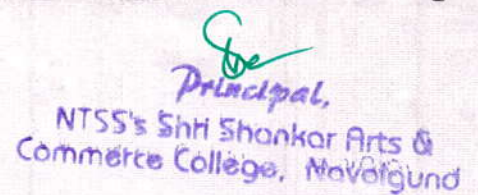 Principal,
NTSS's Shri Shankar Arts &
Commerce College, Navalgund